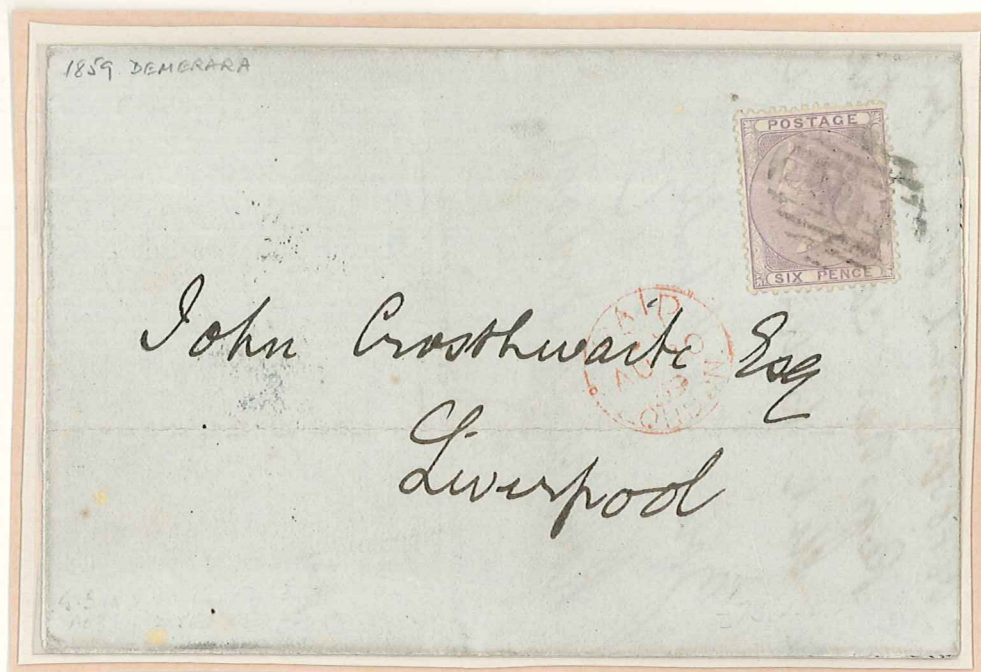 1859 DEMERARA
POSTAGE
SIX PENCE
PAID
LONDON
John Crosthwaite Esq
Liverpool